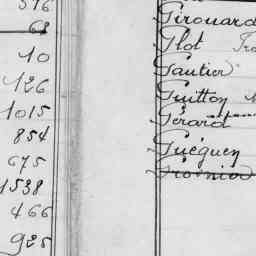 516
68
10
126
1015
854
675
1538
466
925
Girouard
Glot
Gautier
Guitton
Gérard
Guéguen
Grosnier